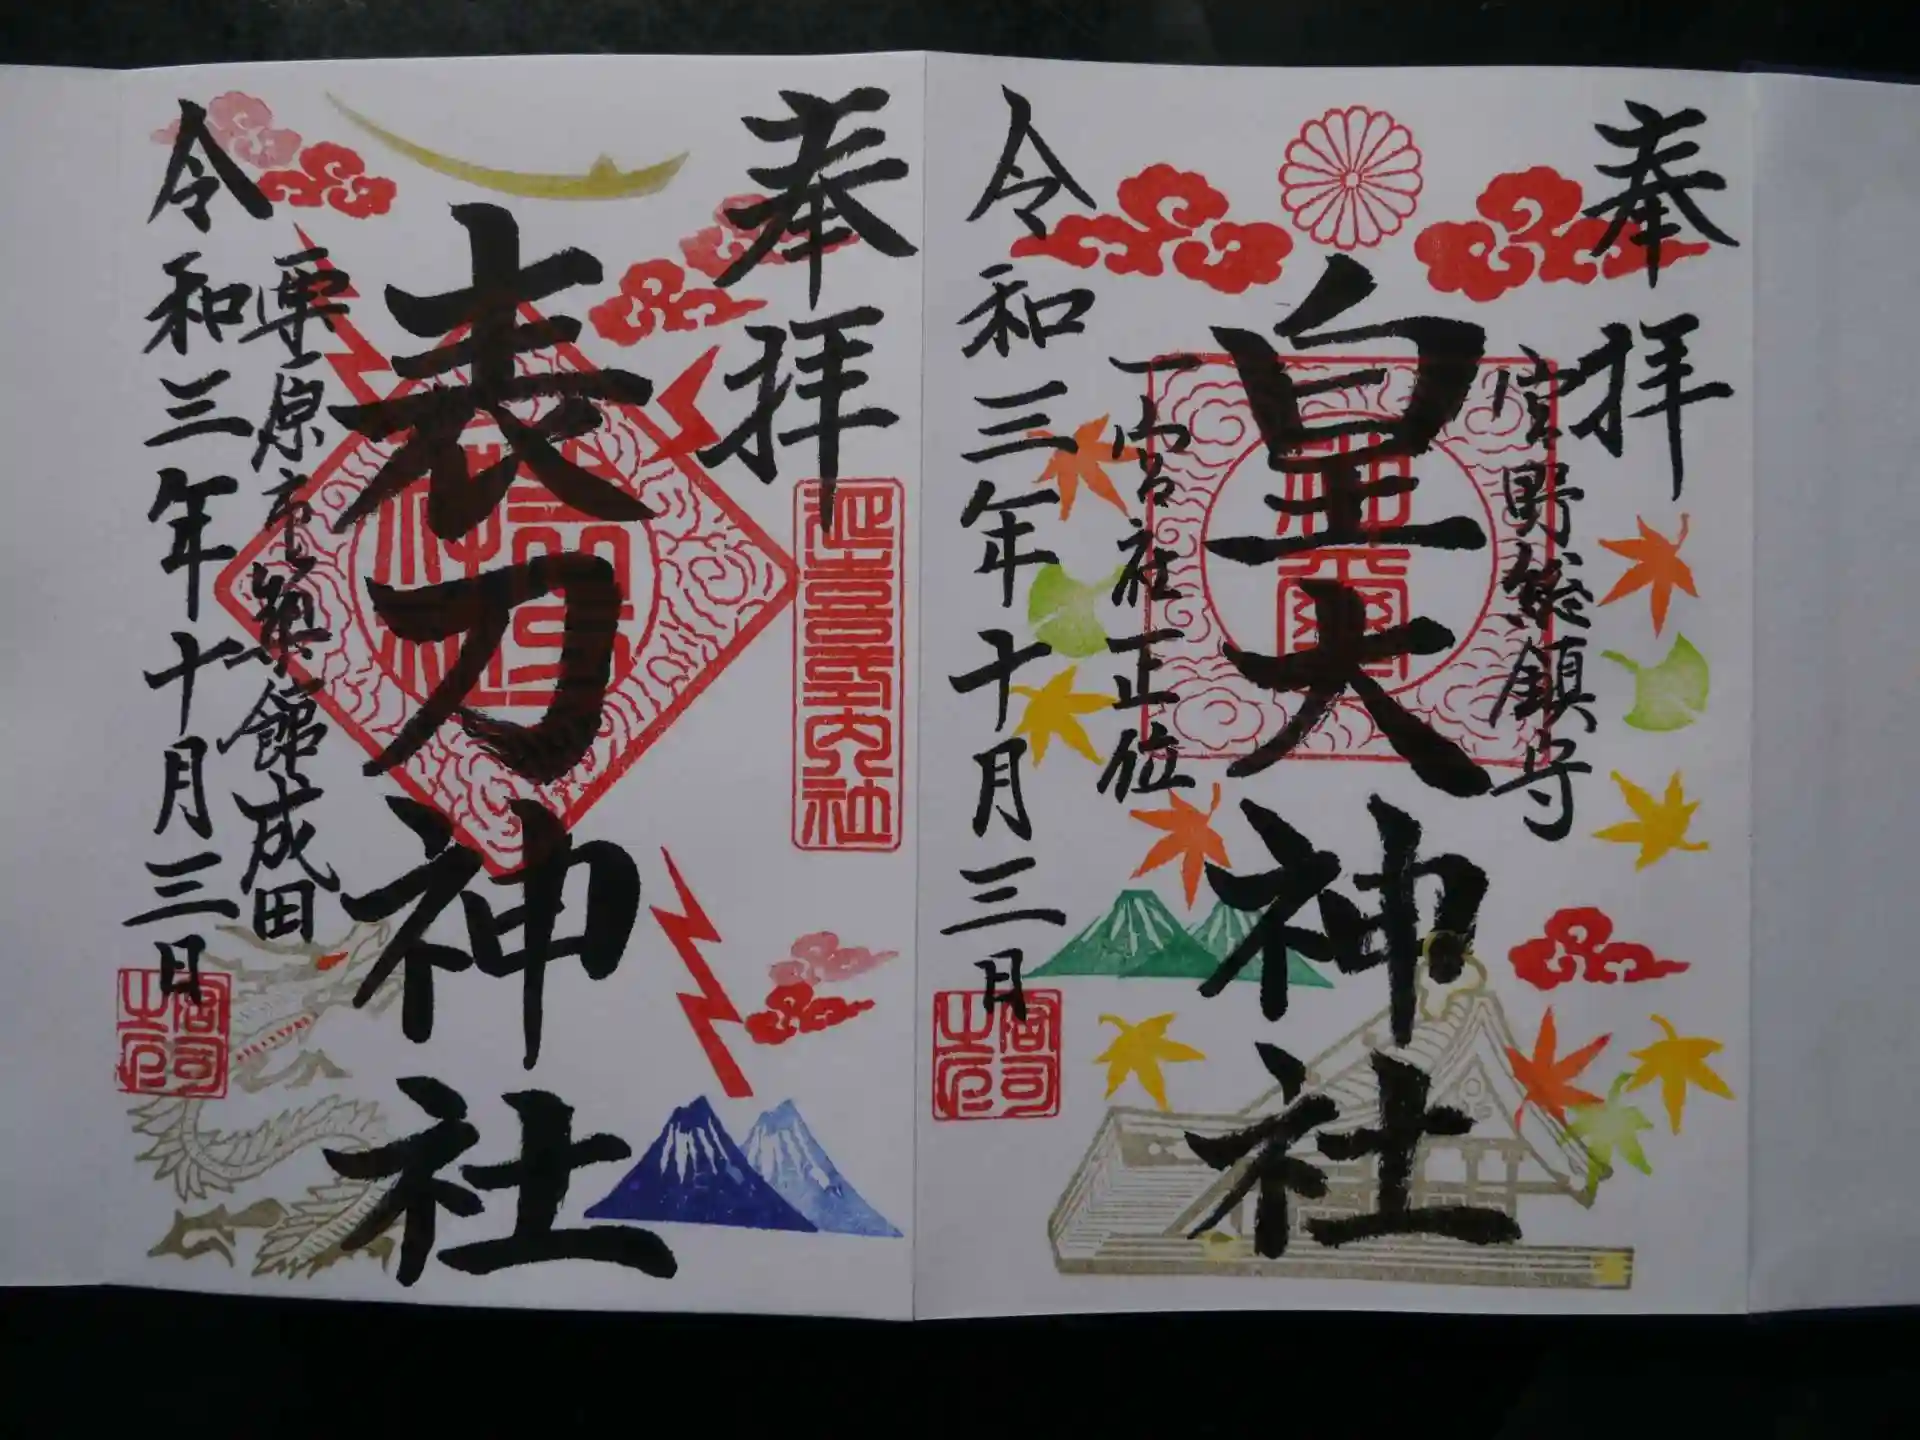 奉拝
宮野総鎮守
皇大神社
一宮社正位
令和三年十月三日
宮司之印
奉拝
延喜式内社
表刀神社
栗原市築館成田
令和三年十月三日
宮司之印